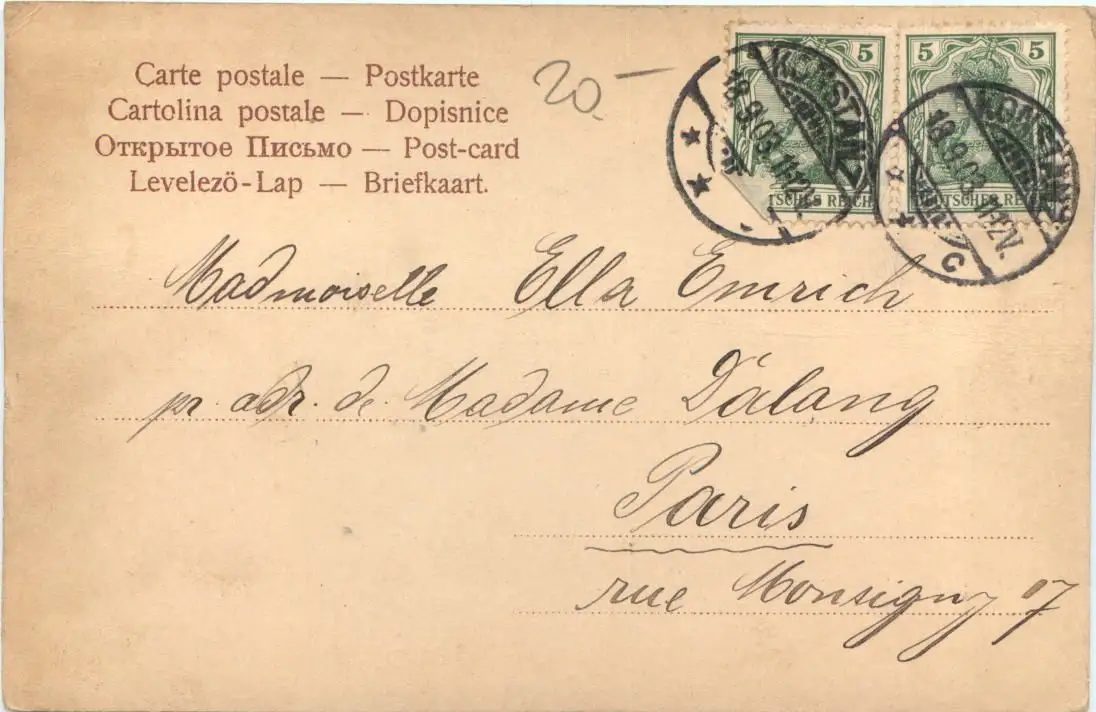 Carte postale — Postkarte
Cartolina postale — Dopisnice
Открытое Письмо — Post-card
Levelező-Lap — Briefkaart.
20.—
5 5 5
KONSTANZ
18.9.03. 11-12V.
TSCHES REICH
KONSTANZ
18.9.03. 11-12V.
C
TSCHES REICH
Madmoiselle Ella Emrich
pr. adr. de Madame D'alang
Paris
rue Monsigny 17